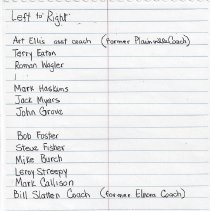 Left to Right
Art Ellis asst coach (former Plainville Coach)
Terry Eaton
Roman Wagler
Mark Haskins
Jack Myers
John Grove
Bob Foster
Steve Fisher
Mike Burch
Leroy Streepy
Mark Callison
Bill Slatten Coach (former Elnora Coach)